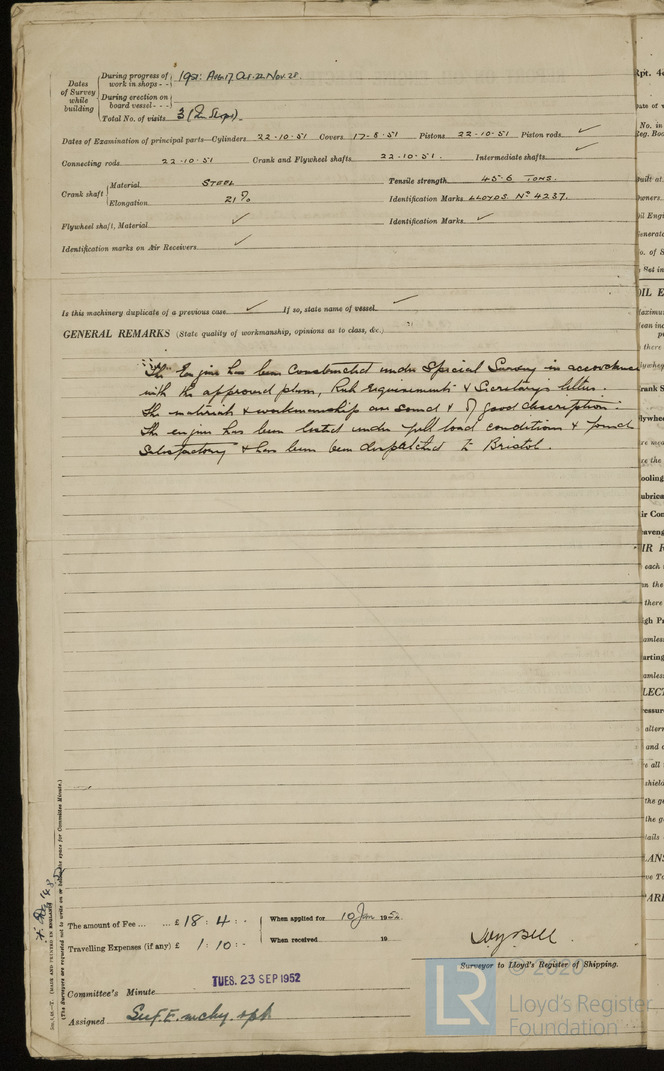 Dates of Survey while building
During progress of work in shops - - 1951: Aug. 17, Oct. 22, Nov. 28.
During erection on board vessel - - -
Total No. of visits 3 (In Shops).
Dates of Examination of principal parts—Cylinders 22-10-51 Covers 17-8-51 Pistons 22-10-51 Piston rods ✓
Connecting rods 22-10-51 Crank and Flywheel shafts 22-10-51. Intermediate shafts ✓
Crank shaft Material STEEL Tensile strength 45·6 TONS.
Elongation 21% Identification Marks LLOYDS Nº 4237.
Flywheel shaft, Material ✓ Identification Marks ✓
Identification marks on Air Receivers ✓
Is this machinery duplicate of a previous case ✓ If so, state name of vessel ✓
GENERAL REMARKS (State quality of workmanship, opinions as to class, &c.)
This Engine has been constructed under Special Survey in accordance
with the approved plans, Rule requirements & Secretary's letters.
The materials & workmanship are sound & of good description.
The engine has been tested under full load conditions & found
satisfactory & has been dispatched to Bristol.
The amount of Fee ... ... £ 18 : 4 : - When applied for 10 Jan 1952
Travelling Expenses (if any) £ 1 : 10 : - When received 19
Surveyor to Lloyd's Register of Shipping.
TUES. 23 SEP 1952
Committee's Minute
Assigned See F.E. mchy. rpt.
(MADE AND PRINTED IN ENGLAND)
(The Surveyors are requested not to write on or below the space for Committee Minute.)
Rpt. 4
No. in
Reg. Boo
Built at
Owners
Oil Engi
Generat
No. of S
Set in
OIL E
there
Crank S
Flywhee
Cooling
Lubrica
Air Con
Scaveng
AIR R
each
there
© 2020
LR
Lloyd's Register
Foundation